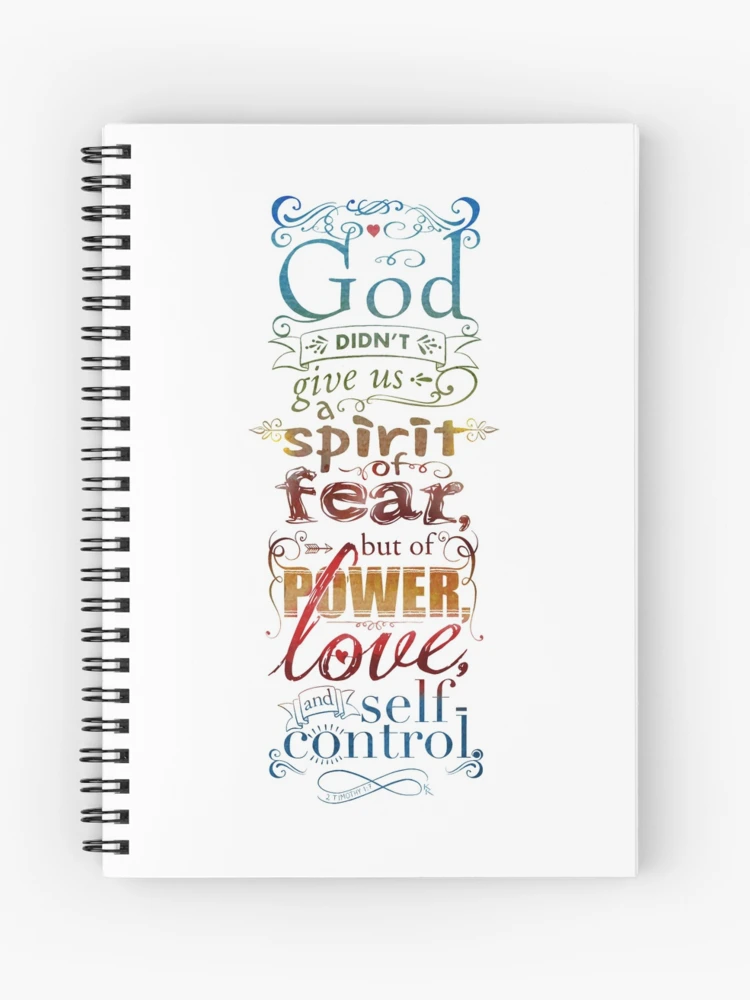 God
DIDN'T
give us
a
spirit
of
fear,
but of
POWER,
love,
and self-
control.
2 TIMOTHY 1:7